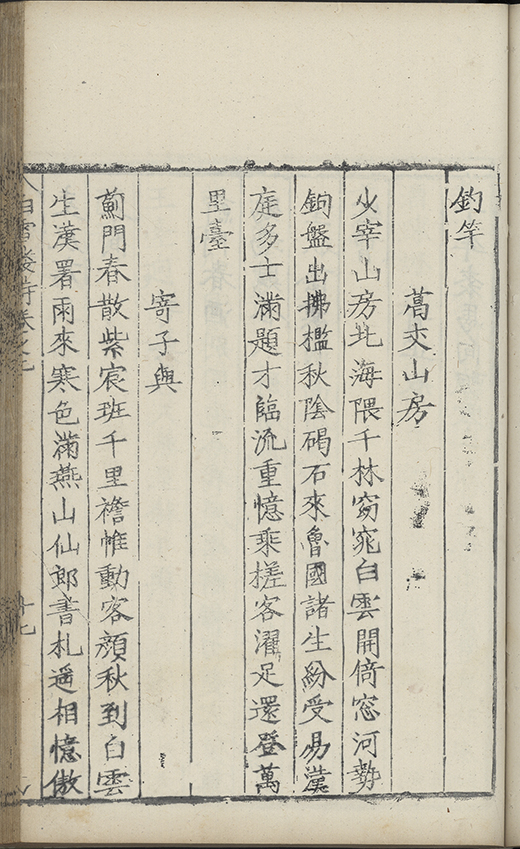 釣竿
萬丈山房
少宰山房北海隈千林窈窕白雲開倚窓河勢
鉤盤出拂檻秋陰碣石來魯國諸生紛受易漢
庭多士滿題才臨流重憶乘槎客濯足還登萬
里臺
寄子與
薊門春散紫宸班千里襜帷動客顔秋到白雲
生漢署雨來寒色滿燕山仙郎書札遥相憶傲
白雪